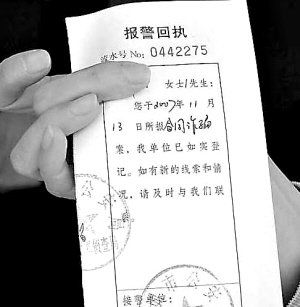 报警回执
流水号 No: 0442275
女士/先生:
您于2007年11月
13日所报合同诈骗
案，我单位已如实登
记。如有新的线索和情
况，请及时与我们联
接警单位: